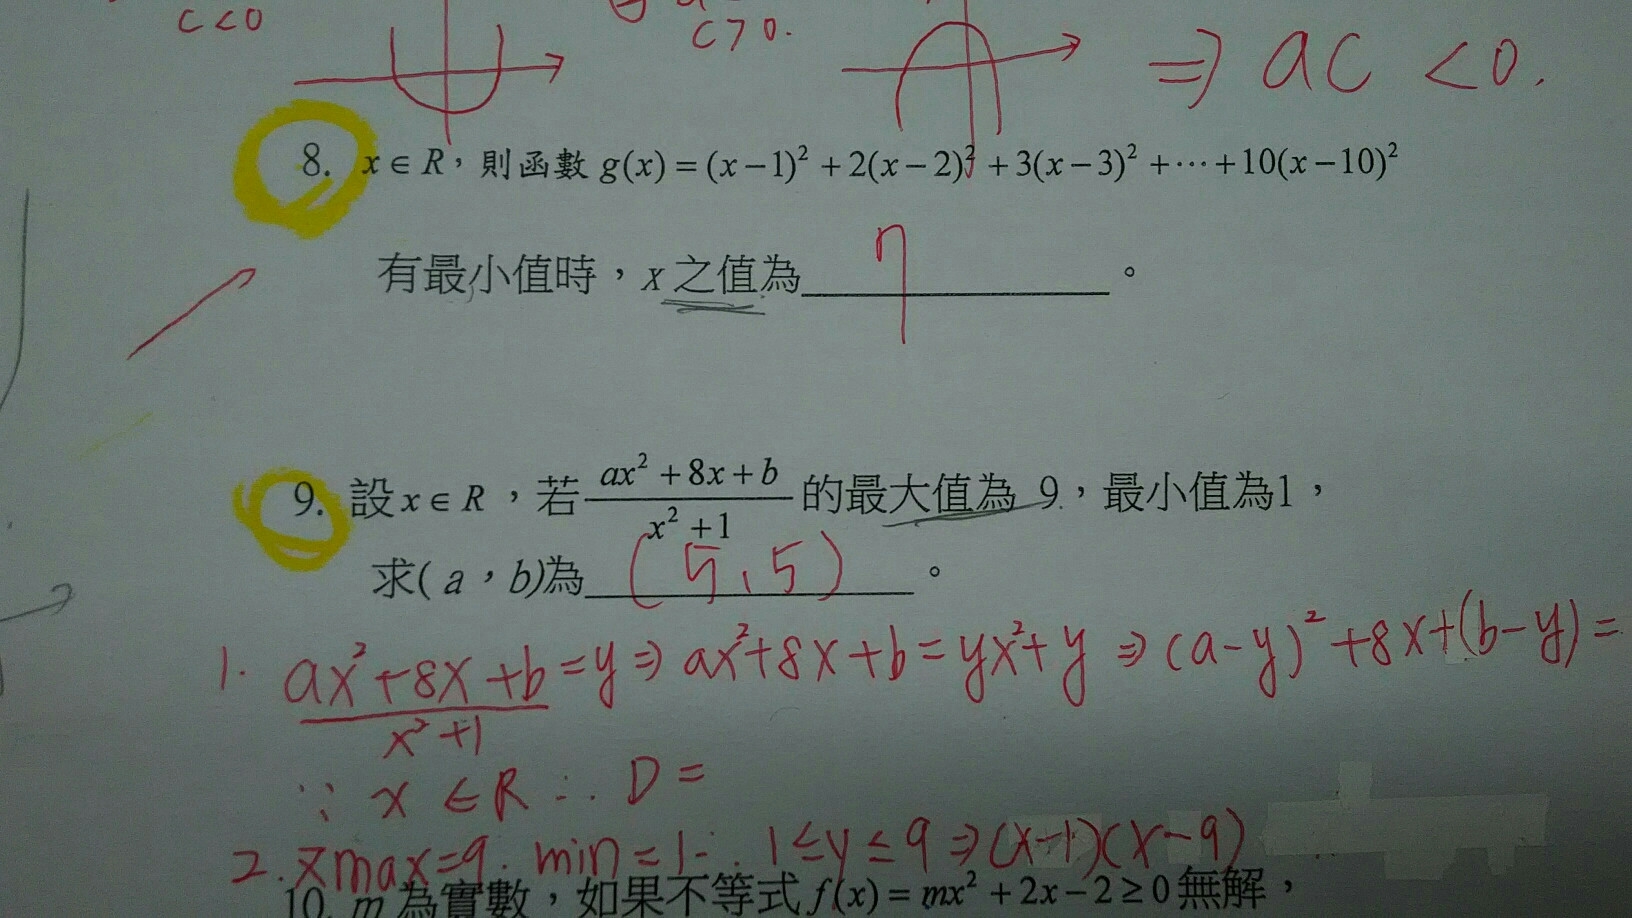 c<0
c>0.
⇒ ac <0.
8. x∈R，則函數 g(x)=(x−1)²+2(x−2)²+3(x−3)²+⋯+10(x−10)²
有最小值時，x 之值為 7 。
9. 設 x∈R，若 (ax²+8x+b)/(x²+1) 的最大值為 9，最小值為1，
求( a，b)為 (5,5) 。
1. (ax²+8x+b)/(x²+1) =y ⇒ ax²+8x+b=yx²+y ⇒ (a-y)²+8x+(b-y)=
∵ x∈R ∴ D=
2. max=9. min=1 ∴ 1≤y≤9 ⇒ (x-1)(x-9)
10. m 為實數，如果不等式 f(x)=mx²+2x−2≥0 無解，